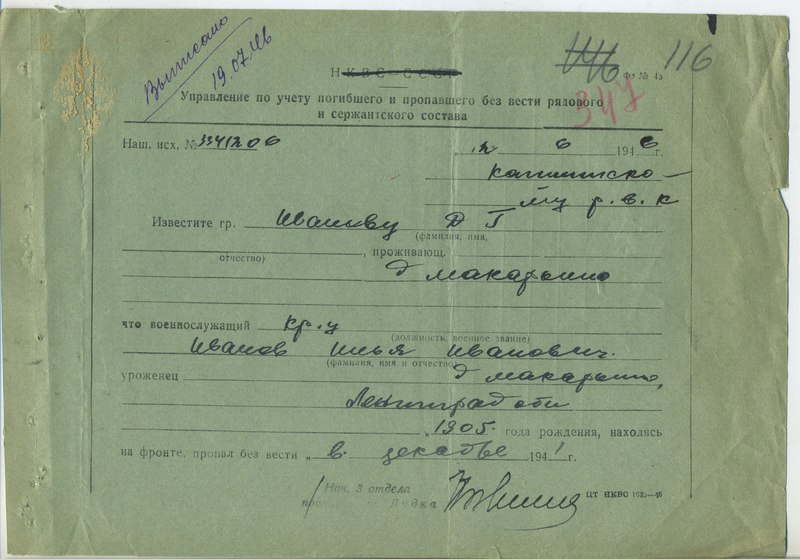 Выписано
19.07.46
116
347
НКВС-СССР
Фз № 4а
Управление по учету погибшего и пропавшего без вести рядового
и сержантского состава
Наш. исх. № 3341206
„12 6 1946 г.
му р.в.к
Известите гр. Иванову Д Г
(фамилия, имя,
отчество) , проживающ.
д макарьино
что военнослужащий кр-ц
(должность, военное звание)
Иванов Илья Иванович.
(фамилия, имя и отчество)
уроженец д макарьино,
Ленинград обл
„1905 года рождения, находясь
на фронте, пропал без вести „ в декабре 1941 г.
Нач. 3 отдела
ЦТ НКВО